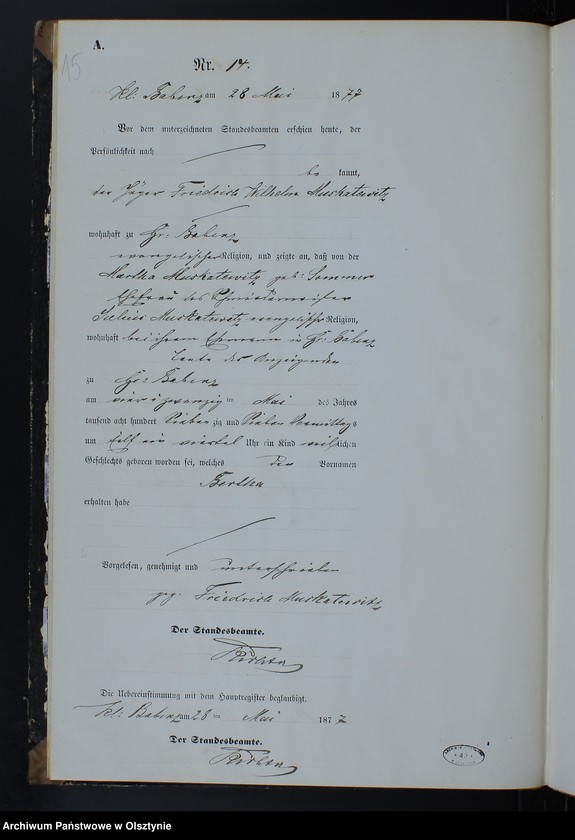 A.
15
Nr. 14.
Kl: Babenz am 28 Mai 1877
Vor dem unterzeichneten Standesbeamten erschien heute, der
Persönlichkeit nach
be kannt,
der Jäger Friedrich Wilhelm Muskatewitz
wohnhaft zu Gr: Babenz
evangelischer Religion, und zeigte an, daß von der
Martha Muskatewitz geb: Sommer
Ehefrau des
Julius Muskatewitz evangelischer Religion,
wohnhaft bei ihrem Ehemann in Gr: Babenz
der Anzeigenden
zu Gr: Babenz
am vier u zwanzig ten Mai des Jahres
tausend acht hundert Sieben zig und Sieben Vormittags
um Elf ein viertel Uhr ein Kind weiblichen
Geschlechts geboren worden sei, welches den Vornamen
Bertha
erhalten habe
Vorgelesen, genehmigt und unterschrieben
gez. Friedrich Muskatewitz
Der Standesbeamte.
Die Uebereinstimmung mit dem Hauptregister beglaubigt.
Kl: Babenz am 28 ten Mai 1877
Der Standesbeamte.
Archiwum Państwowe w Olsztynie